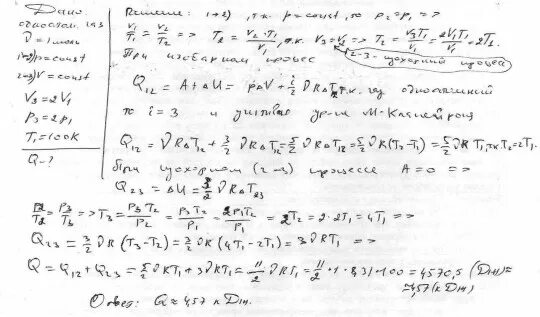 Дано:
одноатом. газ
ν = 1 моль
1→2) p = const
2→3) V = const
V₃ = 2V₁
P₃ = 2p₁
T₁ = 100K
Q - ?
Решение: 1→2), т.к. p = const, то p₂ = p₁ =>
V₁/T₁ = V₂/T₂ => T₂ = V₂·T₁/V₁, т.к. V₃ = V₂ => T₂ = V₃T₁/V₁ = 2V₁T₁/V₁ = 2T₁
При изобарном процес (2-3 - изохорный процесс)
Q₁₂ = A + ΔU = pΔV + i/2 νRΔT, т.к. газ одноатомный
то i = 3 и учитывая ур-ие М-Клапейрона
Q₁₂ = νRΔT₁₂ + 3/2 νRΔT₁₂ = 5/2 νRΔT₁₂ = 5/2 νR(T₂-T₁) = 5/2 νRT₁, т.к. T₂ = 2T₁.
При изохорном (2→3) процессе A = 0 =>
Q₂₃ = ΔU = 3/2 νRΔT₂₃
P₂/T₂ = P₃/T₃ => T₃ = P₃T₂/P₂ = P₃T₂/P₁ = 2P₁T₂/P₁ = 2T₂ = 2·2T₁ = 4T₁ =>
Q₂₃ = 3/2 νR(T₃-T₂) = 3/2 νR(4T₁-2T₁) = 3νRT₁ =>
Q = Q₁₂ + Q₂₃ = 5/2 νRT₁ + 3νRT₁ = 11/2 νRT₁ = 11/2 · 1 · 8,31 · 100 = 4570,5 (Дж) ≈
≈ 4,57 (кДж)
Ответ: Q ≈ 4,57 кДж.